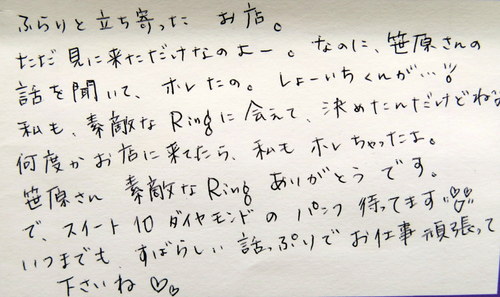 ふらりと立ち寄った お店。
ただ見に来ただけなのよー。なのに、笹原さんの
話を聞いて、ホレたの。しょーいちくんが…!!
私も、素敵なRingに会えて、決めたんだけどね
何度かお店に来てたら、私もホレちゃったよ。
笹原さん 素敵なRing ありがとうです。
で、スイート10ダイヤモンドの パンフ 待ってます♡♡
いつまでも すばらしい 話っぷりで お仕事 頑張って
下さいね♡♡